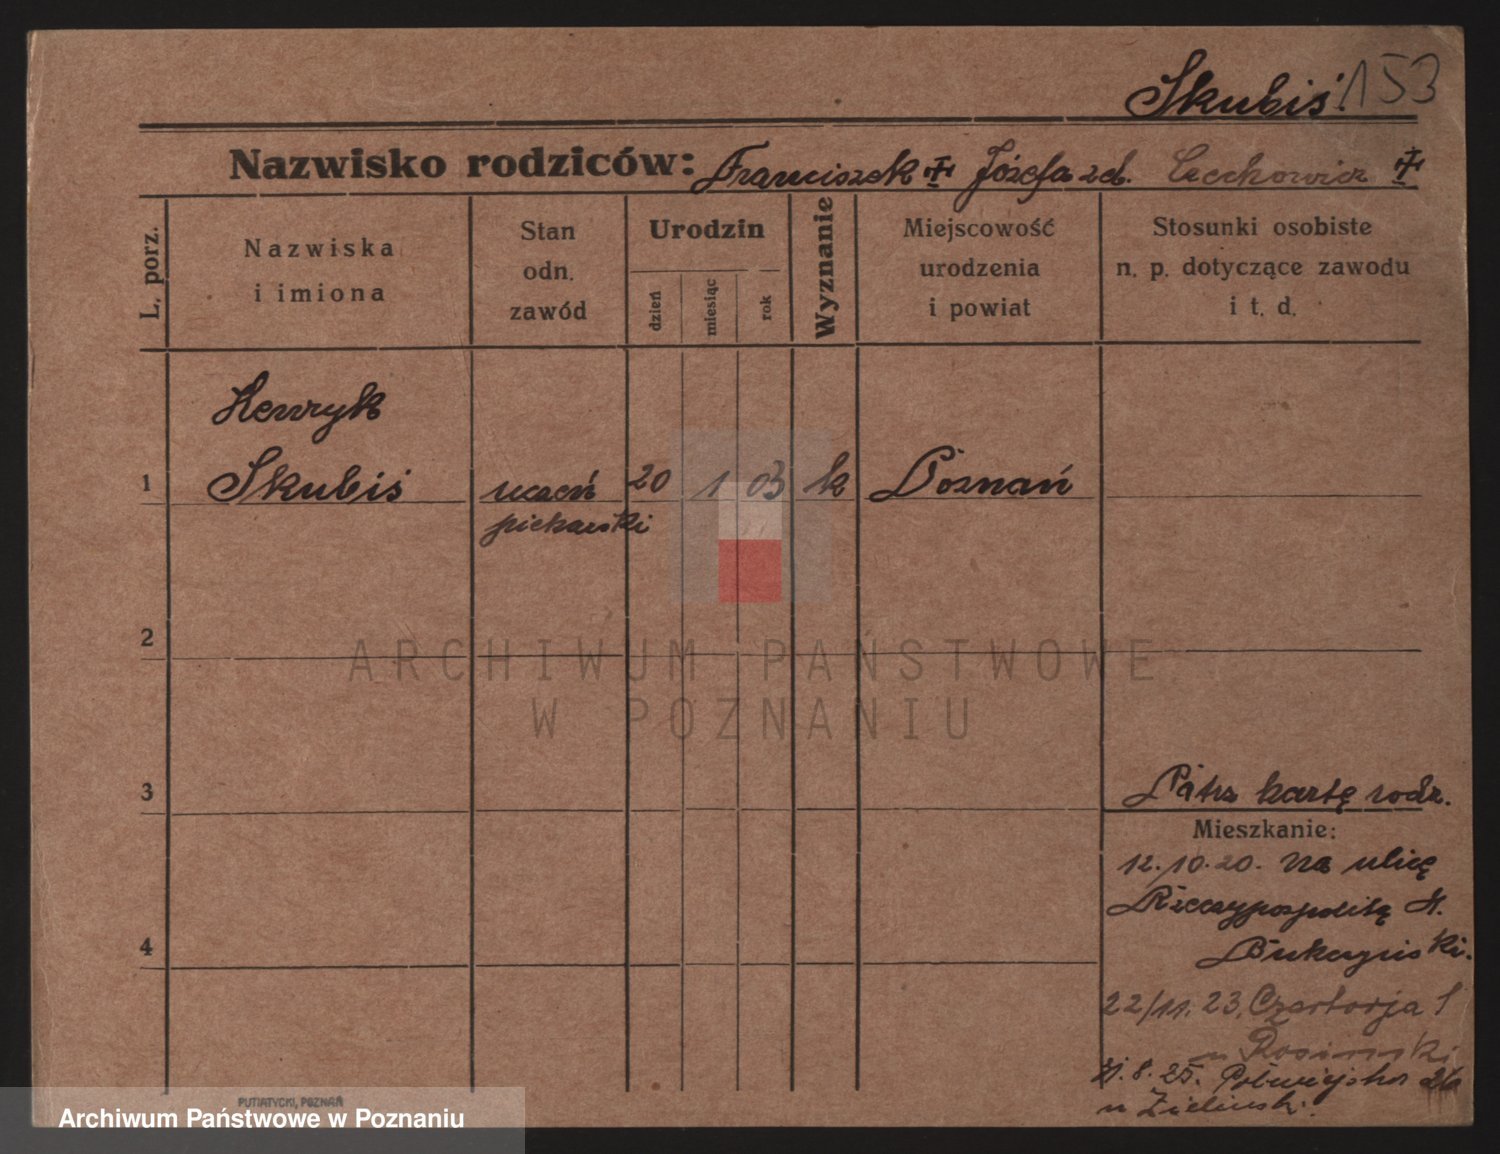 Skubiś. 153
Nazwisko rodziców: Franciszek Józefa zd. Czechowicz
L. porz.
Nazwiska
i imiona
Stan
odn.
zawód
Urodzin
dzień
miesiąc
rok
Wyznanie
Miejscowość
urodzenia
i powiat
Stosunki osobiste
n. p. dotyczące zawodu
i t. d.
Henryk
1 Skubiś uczeń 20 1 03 k Poznań
piekarski
2
ARCHIWUM PAŃSTWOWE
W POZNANIU
3 Patrz kartę rodz.
Mieszkanie:
12.10.20. na ulicę
Rzeczypospolitą
4
22/11.23.
8. 25. Półwiejska 26
u Zieliński.
PUTIATYCKI, POZNAŃ
Archiwum Państwowe w Poznaniu